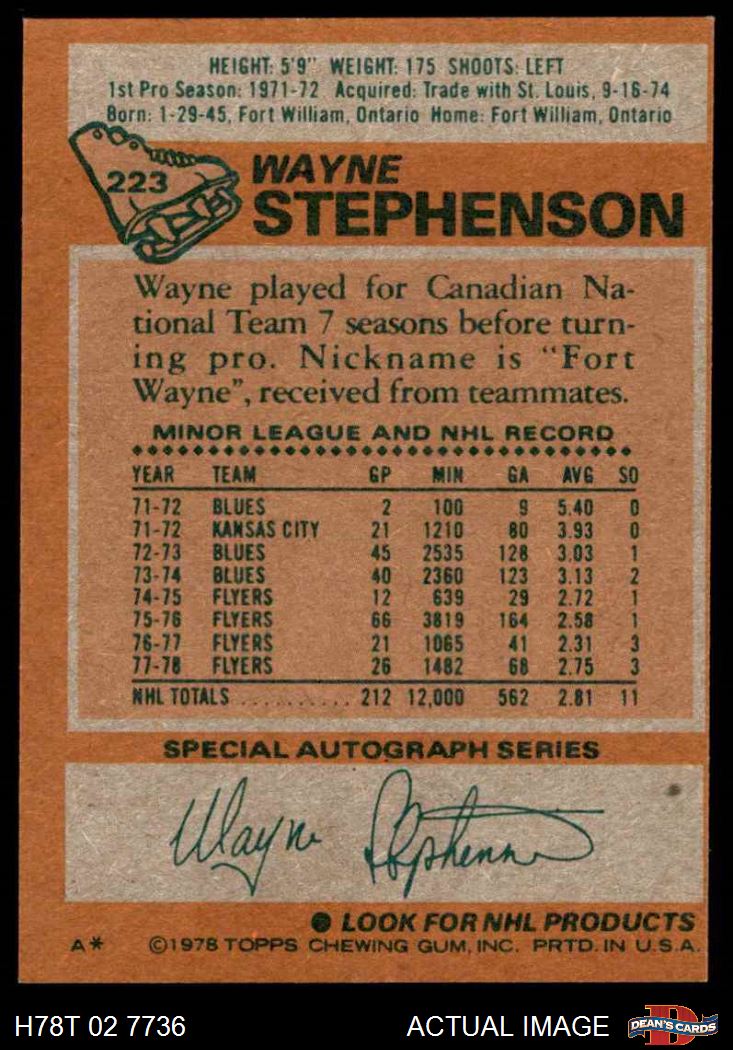 HEIGHT: 5'9" WEIGHT: 175 SHOOTS: LEFT
1st Pro Season: 1971-72 Acquired: Trade with St. Louis, 9-16-74
Born: 1-29-45, Fort William, Ontario Home: Fort William, Ontario
223
WAYNE
STEPHENSON
Wayne played for Canadian Na-
tional Team 7 seasons before turn-
ing pro. Nickname is "Fort
Wayne", received from teammates.
MINOR LEAGUE AND NHL RECORD
YEAR TEAM GP MIN GA AVG SO
71-72 BLUES 2 100 9 5.40 0
71-72 KANSAS CITY 21 1210 80 3.93 0
72-73 BLUES 45 2535 128 3.03 1
73-74 BLUES 40 2360 123 3.13 2
74-75 FLYERS 12 639 29 2.72 1
75-76 FLYERS 66 3819 164 2.58 1
76-77 FLYERS 21 1065 41 2.31 3
77-78 FLYERS 26 1482 68 2.75 3
NHL TOTALS .......... 212 12,000 562 2.81 11
SPECIAL AUTOGRAPH SERIES
Wayne Stephenson
● LOOK FOR NHL PRODUCTS
A* ©1978 TOPPS CHEWING GUM, INC. PRTD. IN U.S.A.
H78T 02 7736 ACTUAL IMAGE D DEAN'S CARDS